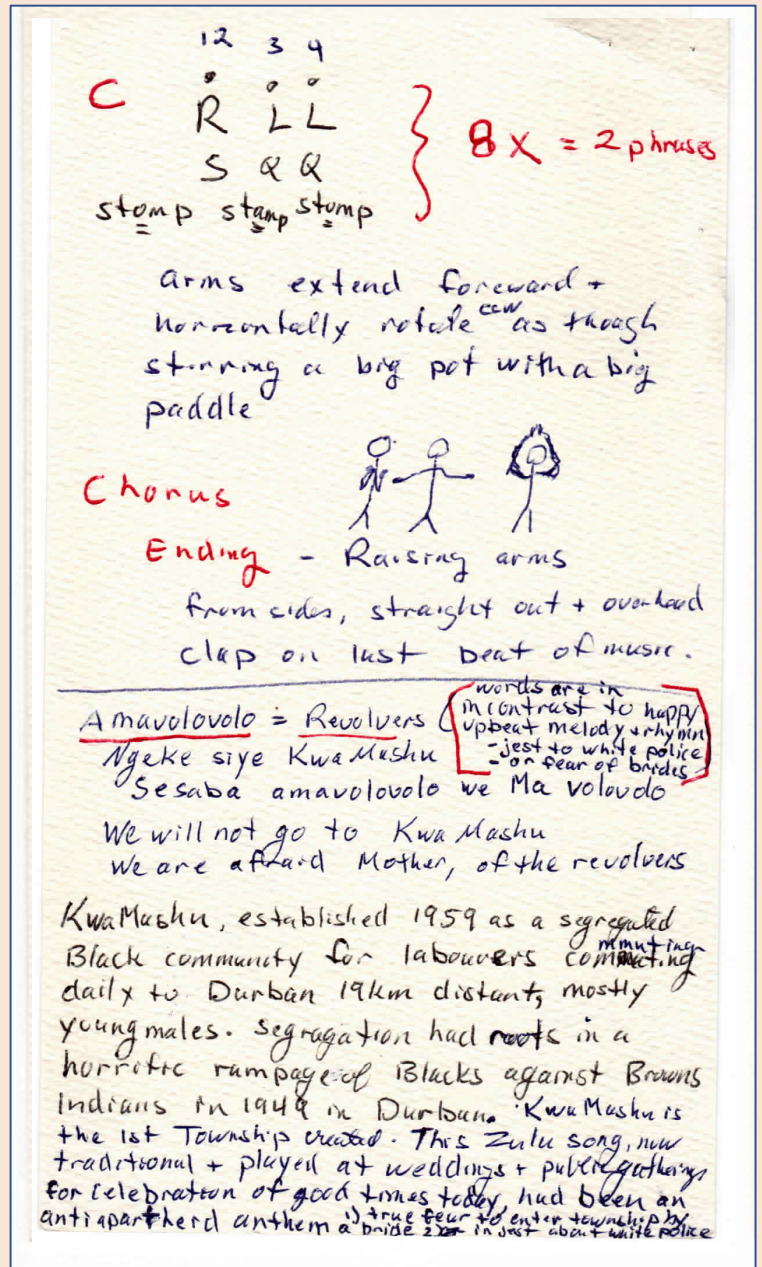 12 3 4
C
R L L
S Q Q
8 X = 2 phrases
stomp stamp stomp
arms extend foreward +
horizontally rotate ccw as though
stirring a big pot with a big
paddle
Chorus
Ending - Raising arms
from sides, straight out + overhead
clap on last beat of music.
Amavolovolo = Revolvers (
words are in
in contrast to happy
upbeat melody + rhymn
- jest to white police
- or fear of brides
Ngeke siye KwaMashu
Sesaba amavolovolo we Ma volovdo
We will not go to Kwa Mashu
We are afraid Mother, of the revolvers
KwaMashu, established 1959 as a segregated
Black community for labourers commuting
daily to Durban 19km distant, mostly
young males. Segragation had roots in a
horrific rampage of Blacks against Browns
Indians in 1949 in Durban. KwaMashu is
the 1st Township created. This Zulu song, now
traditional + played at weddings + public gatherings
for celebration of good times today, had been an
antiapartheid anthem 1) true fear to enter township by
a bride 2) or in jest about white police